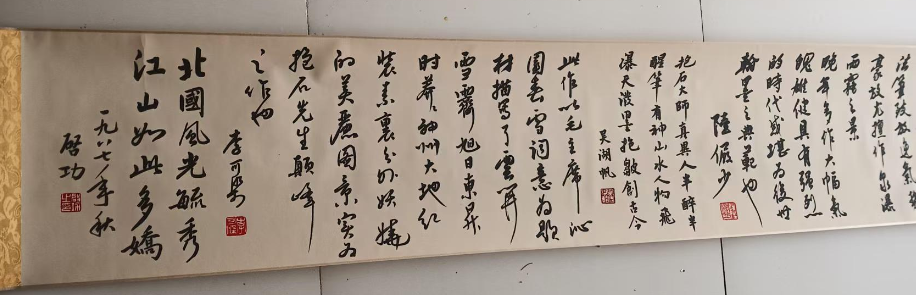 豪放尤擅作泉瀑
而霧之景
晚年多作大幅氣
魄雄健具有強烈
的時代感堪為後世
翰墨之典範也
陸儼少
抱石大師真異人半醉半
醒筆有神山水人物飛
瀑天潑墨抱皴創古今
吴湖帆
此作以毛主席沁
園春雪詞意為題
材描寫了雲開
雪霽旭日東昇
時蒼蒼神州大地紅
裝素裹分外妖嬈
的美麗圖景實為
抱石先生顛峰
之作也
李可染
北國風光毓秀
江山如此多嬌
一九八七年秋
啟功